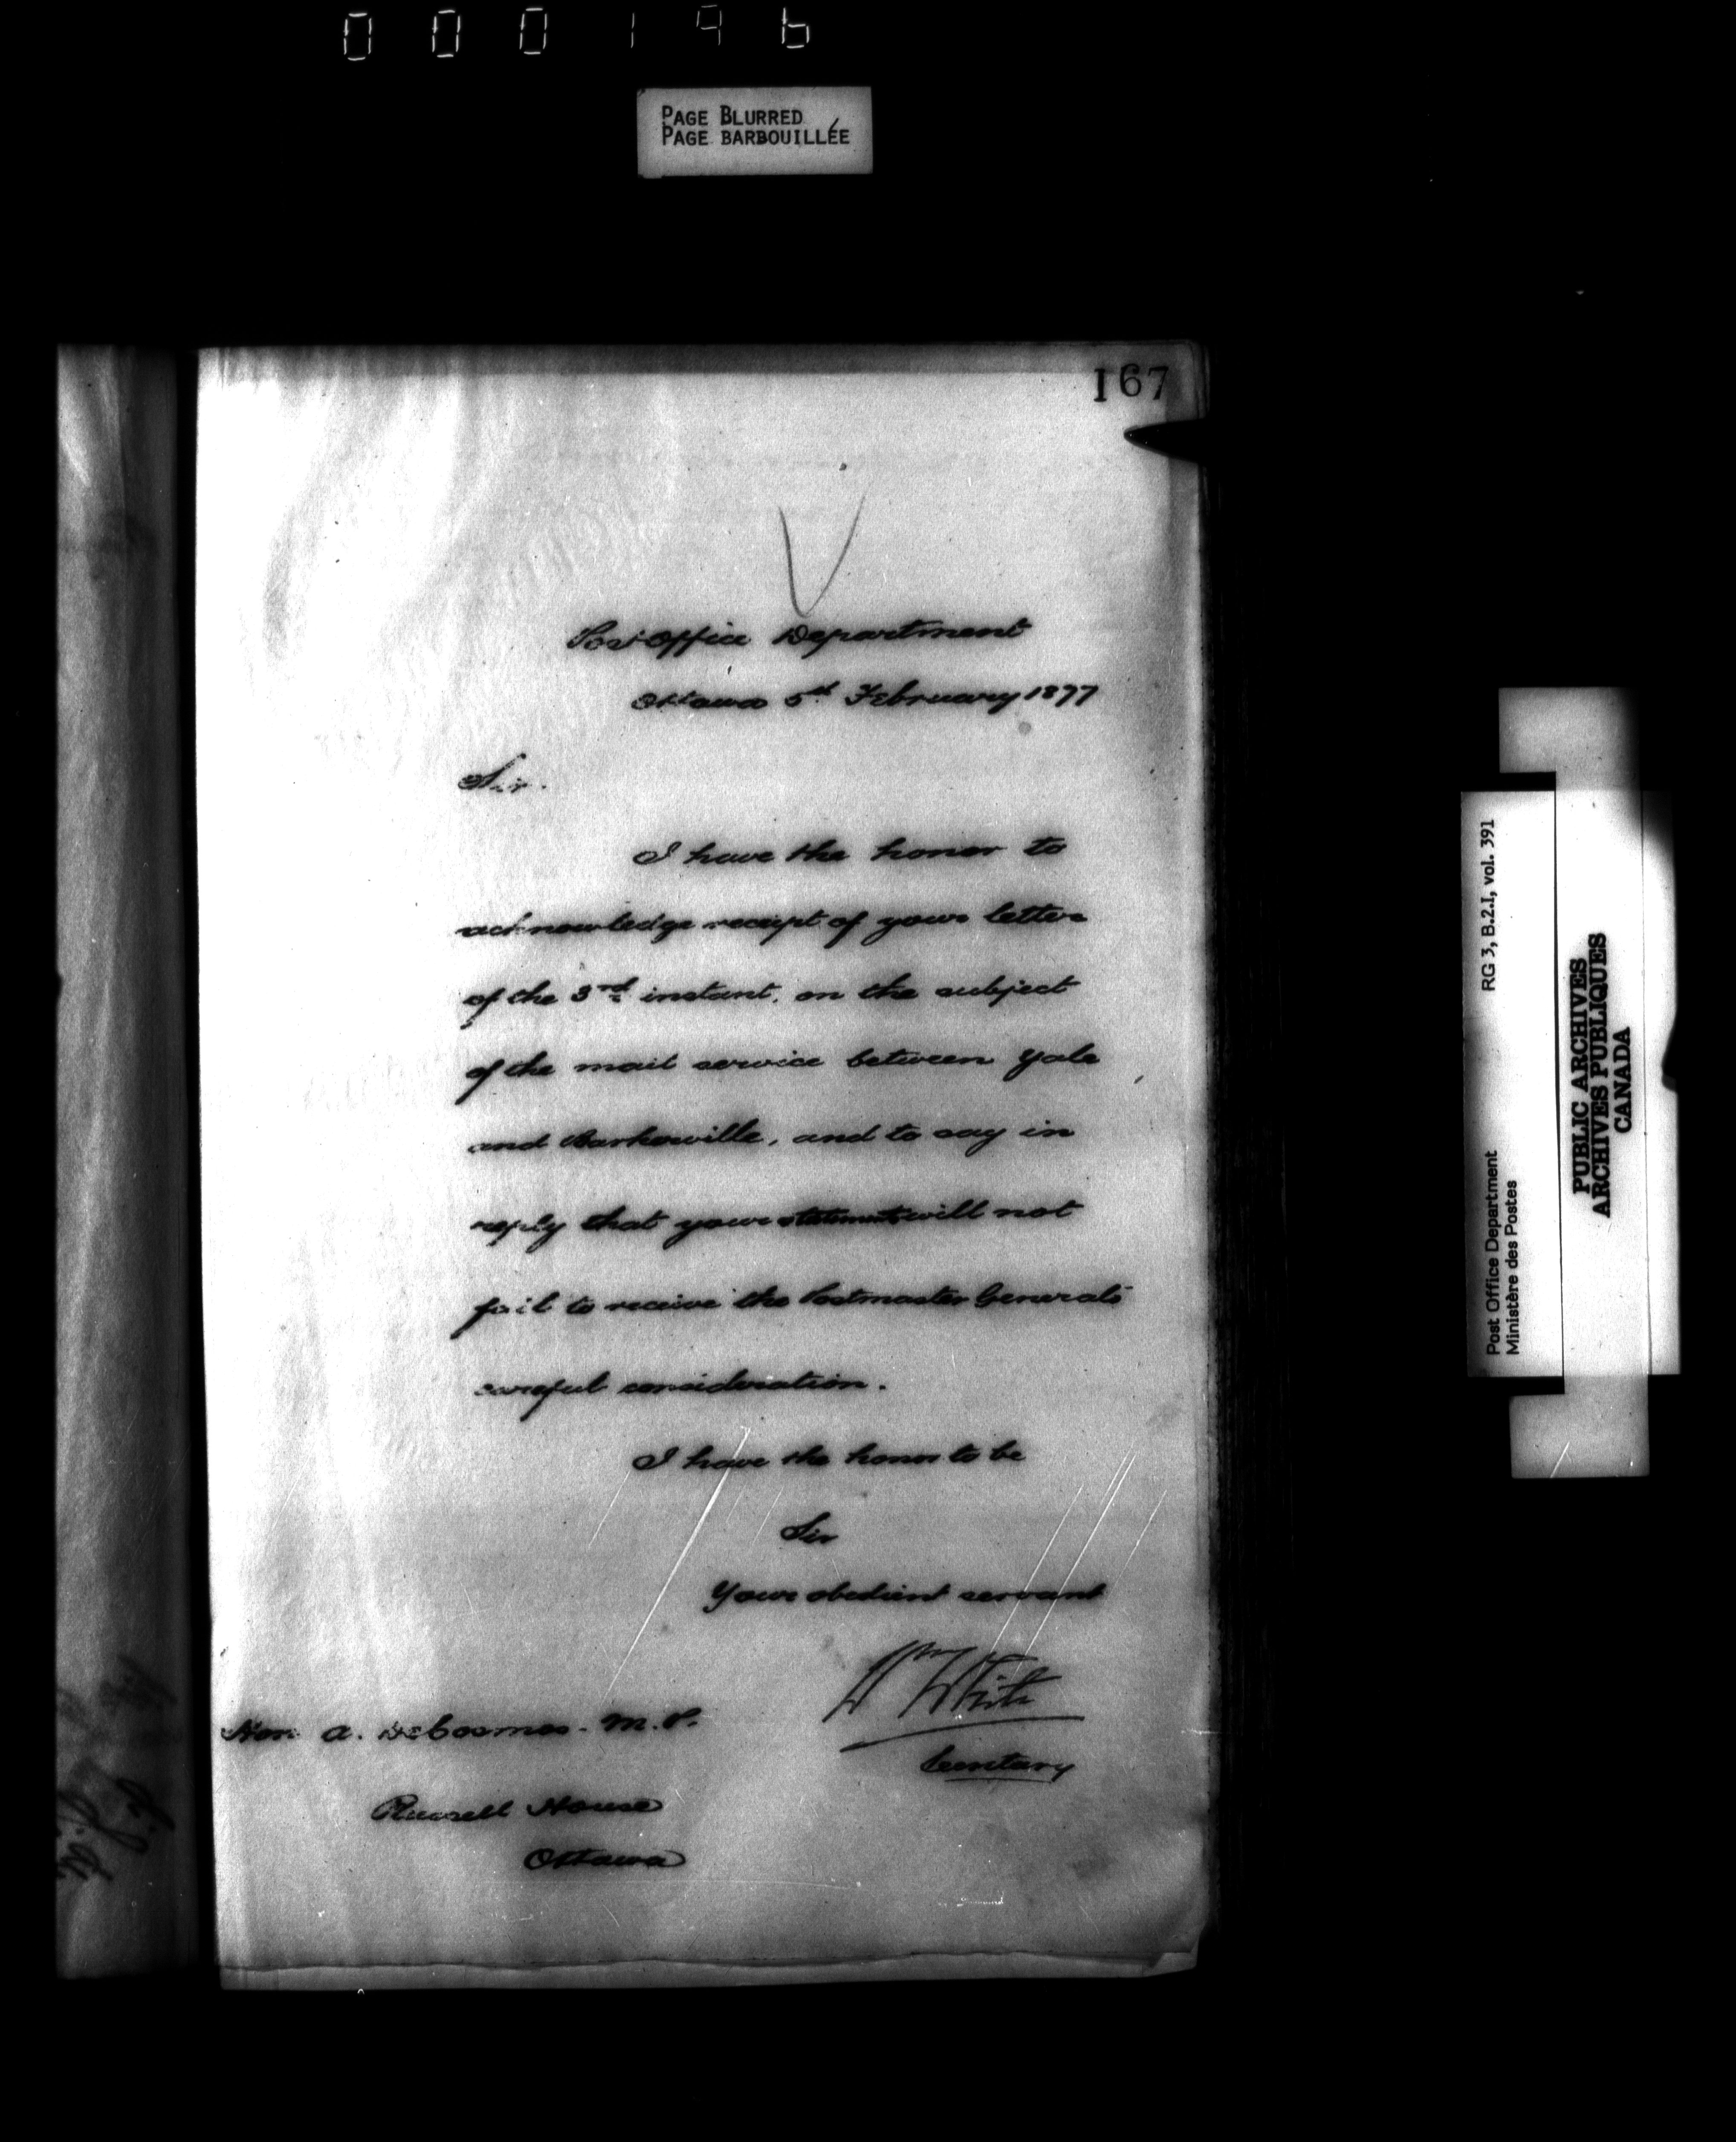 000196
PAGE BLURRED
PAGE BARBOUILLÉE
167
Post Office Department
Ottawa 5th February 1877
Sir.
I have the honor to
acknowledge receipt of your letter
of the 3rd instant, on the subject
of the mail service between Yale
and Barkerville, and to say in
reply that your statements will not
fail to receive the Postmaster Generals
careful consideration.
I have the honor to be
Sir
Your obedient servant
Wm White
Secretary
Hon. A. DeCosmos. M.P.
Russell House
Ottawa
RG 3, B.2.I, vol. 391
Post Office Department
Ministère des Postes
PUBLIC ARCHIVES
ARCHIVES PUBLIQUES
CANADA